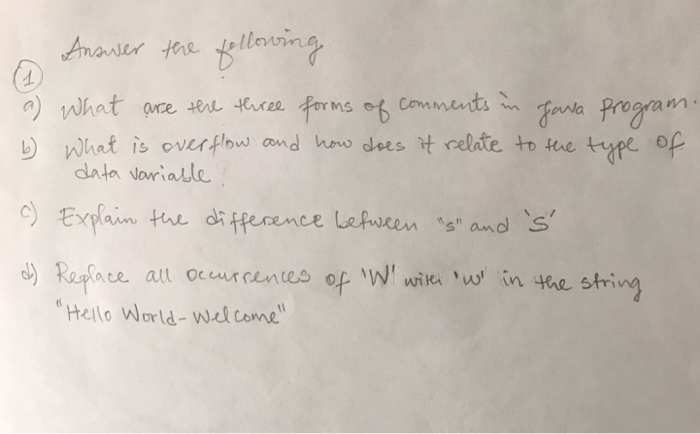 Answer the following
1
a) What are the three forms of comments in Java Program.
b) What is overflow and how does it relate to the type of
data variable.
c) Explain the difference between "s" and 's'
d) Replace all occurrences of 'W' with 'w' in the string
"Hello World-Welcome"